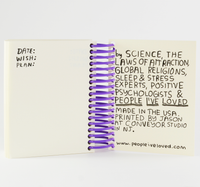 DATE:
WISH:
PLAN:
by SCIENCE, THE
LAWS OF ATTRACTION,
GLOBAL RELIGIONS,
SLEEP & STRESS
EXPERTS, POSITIVE
PSYCHOLOGISTS &
PEOPLE I'VE LOVED
MADE IN THE USA.
PRINTED BY JASON
AT CONVEYOR STUDIO
in NJ.
www.people-ive-loved.com